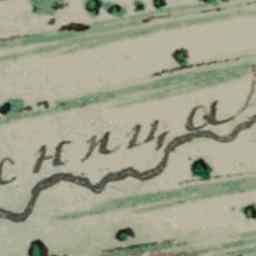 снпца